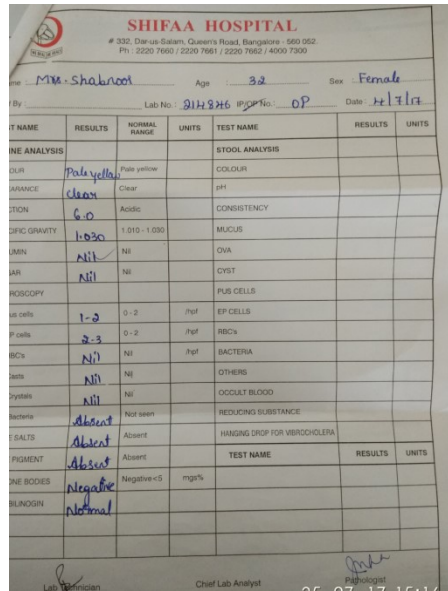 SHIFAA HOSPITAL
# 332, Dar-us-Salam, Queen's Road, Bangalore - 560 052.
Ph : 2220 7660 / 2220 7661 / 2220 7662 / 4000 7300
me : Mrs. Shabnoor Age : 32 Sex : Female
By : Lab No. : 214846 IP/OP No. : OP Date : 4/7/17
T NAME RESULTS NORMAL RANGE UNITS TEST NAME RESULTS UNITS
INE ANALYSIS STOOL ANALYSIS
OUR Pale yellow Pale yellow COLOUR
ARANCE Clear Clear pH
TION 6.0 Acidic CONSISTENCY
IFIC GRAVITY 1.030 1.010 - 1.030 MUCUS
UMIN Nil Nil OVA
AR Nil Nil CYST
ROSCOPY PUS CELLS
us cells 1-2 0 - 2 /hpf EP CELLS
P cells 2-3 0 - 2 /hpf RBC's
BC's Nil Nil /hpf BACTERIA
Casts Nil Nil OTHERS
Crystals Nil Nil OCCULT BLOOD
Bacteria Absent Not seen REDUCING SUBSTANCE
E SALTS Absent Absent HANGING DROP FOR VIBROCHOLERA
PIGMENT Absent Absent TEST NAME RESULTS UNITS
ONE BODIES Negative Negative<5 mgs%
BILINOGIN Normal
Lab Technician Chief Lab Analyst Pathologist